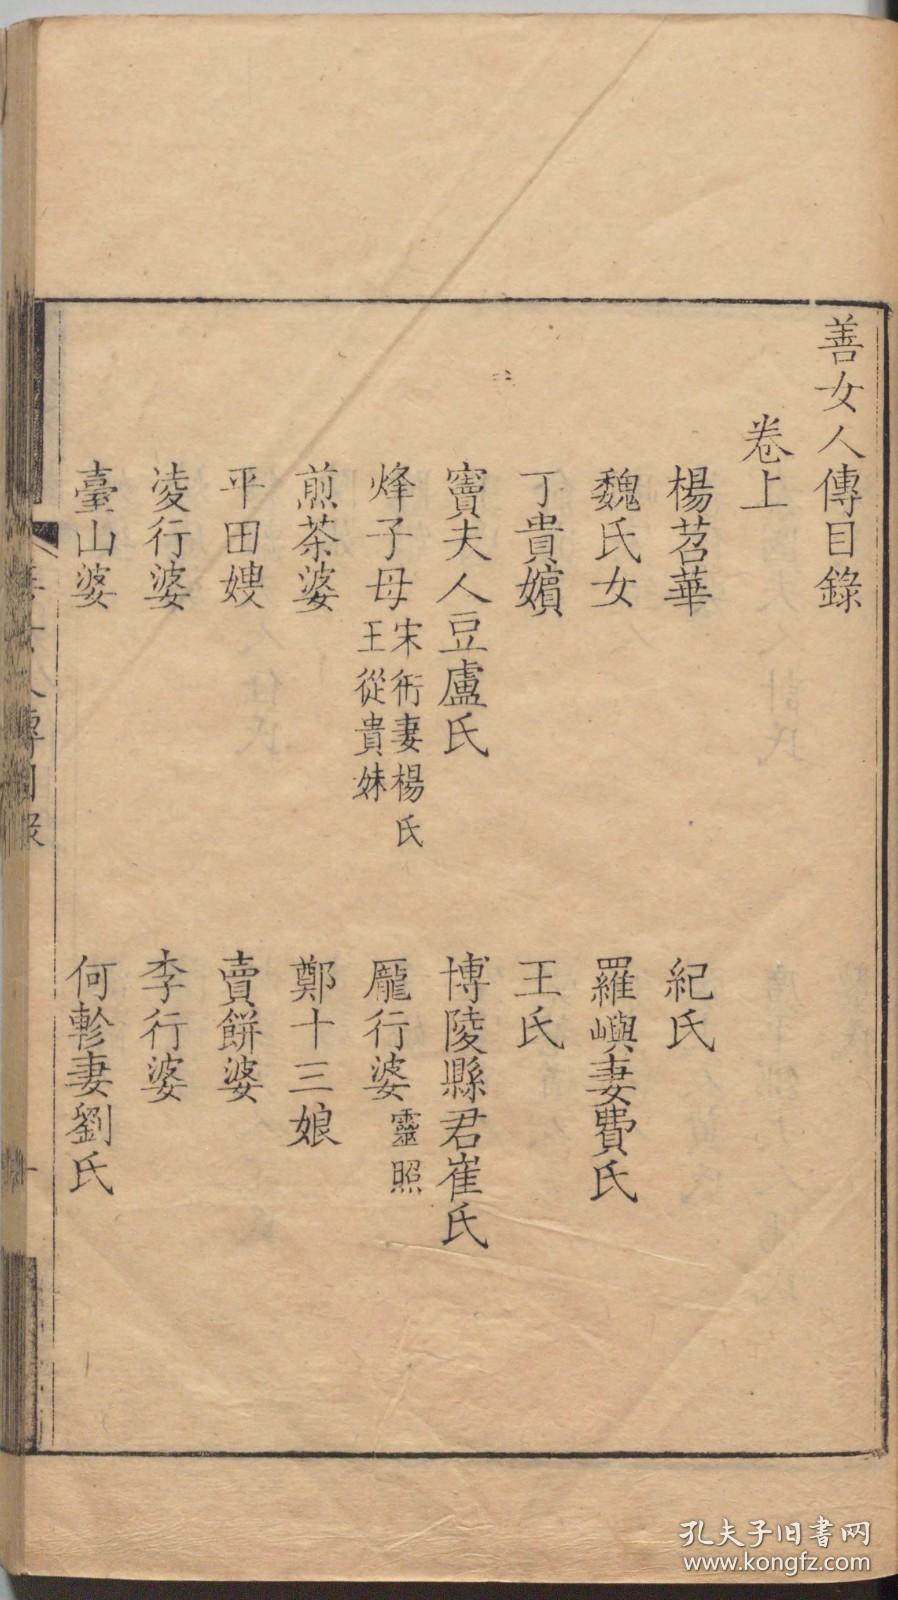 善女人傳目錄
卷上
楊苕華
紀氏
魏氏女
羅嶼妻費氏
丁貴嬪
王氏
竇夫人豆盧氏
博陵縣君崔氏
烽子母
宋衎妻楊氏
王從貴妹
龐行婆
靈照
煎茶婆
鄭十三娘
平田嫂
賣餅婆
凌行婆
李行婆
臺山婆
何軫妻劉氏
善女人傳目錄
一
孔夫子旧書网
www.kongfz.com